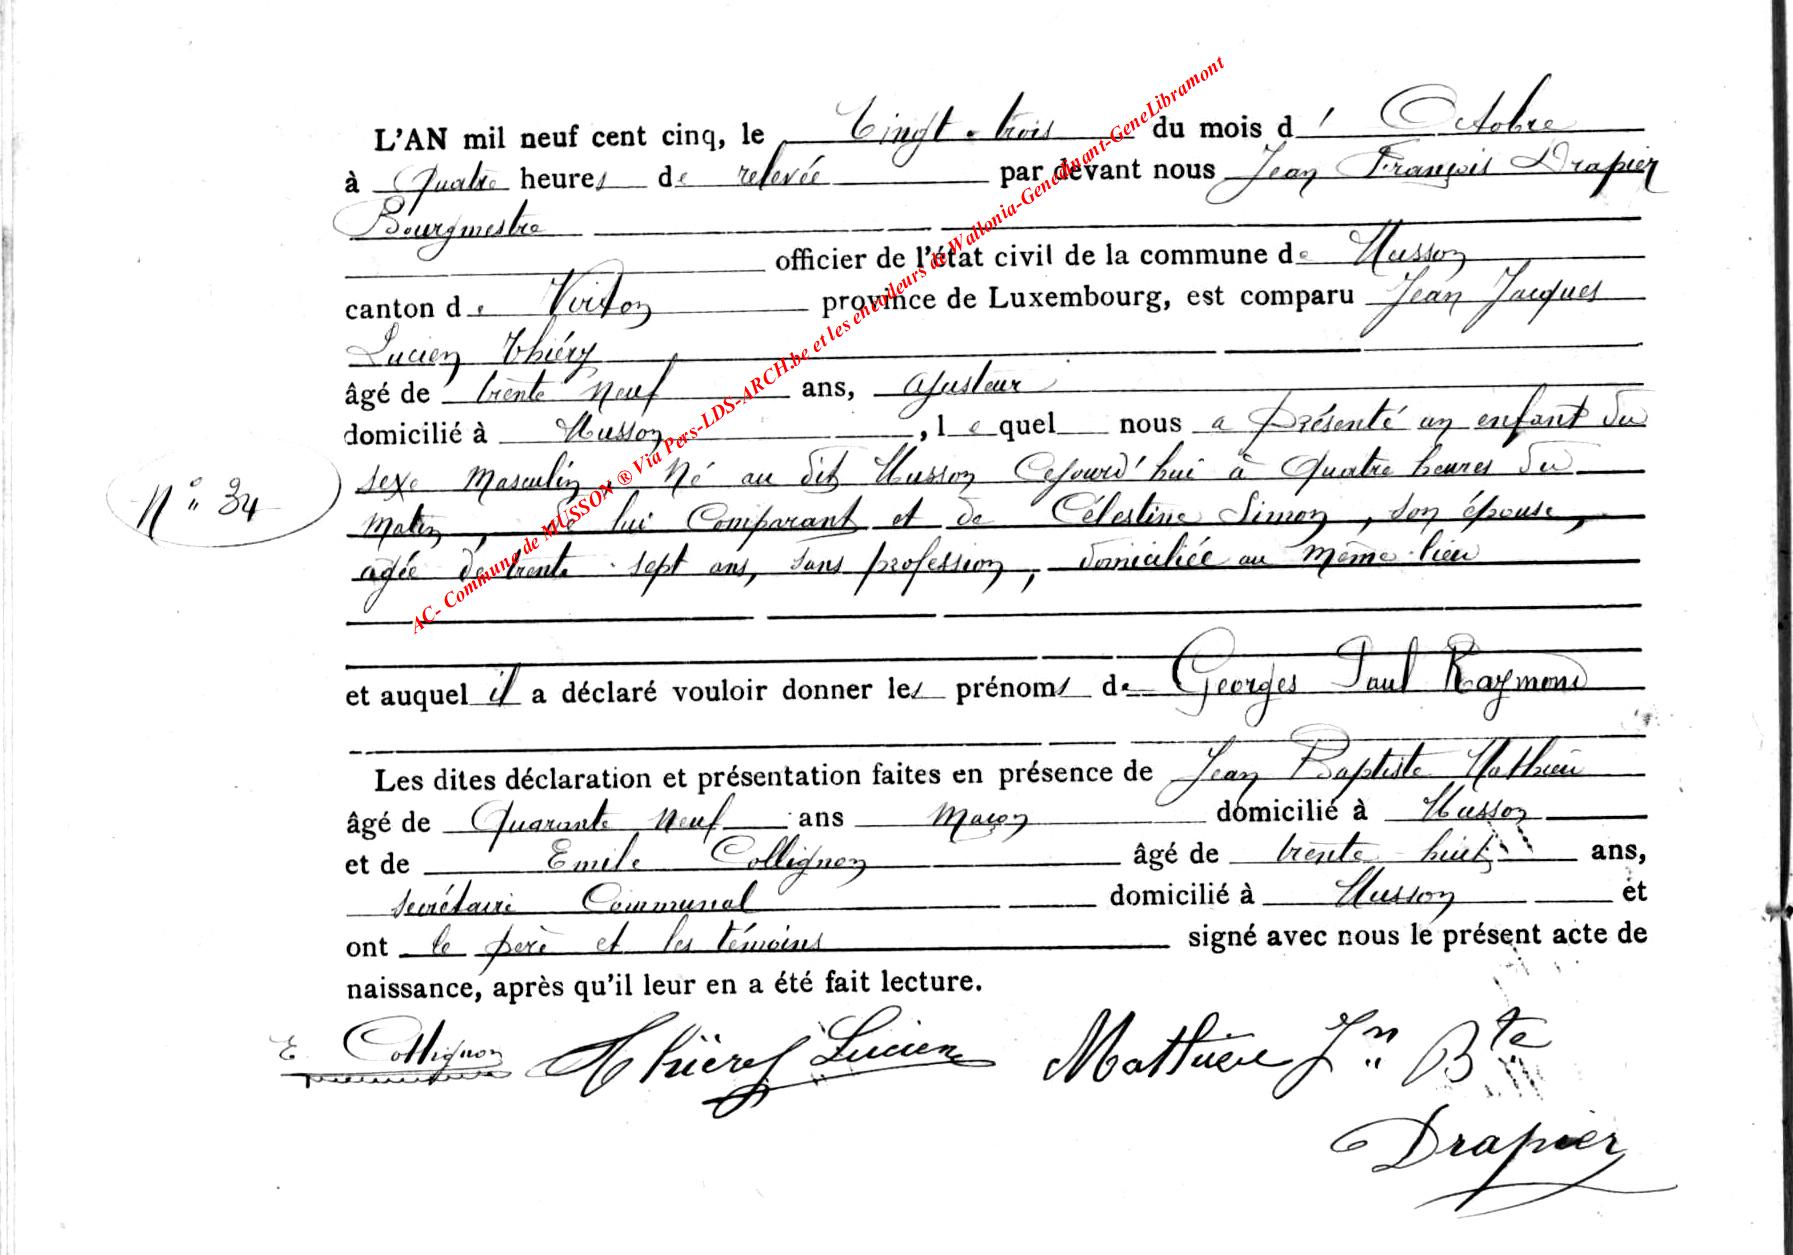 L'AN mil neuf cent cinq, le Vingt-trois du mois d' Octobre
à Quatre heures de relevée par devant nous Jean François Drapier
Bourgmestre
officier de l'état civil de la commune de Musson
canton de Virton province de Luxembourg, est comparu Jean Jacques
Lucien Thiéry
âgé de trente neuf ans, ajusteur
domicilié à Musson, lequel nous a présenté un enfant du
N° 34
sexe masculin, Né au dit Musson Cejourd'hui à Quatre heures du
matin, de lui Comparant et de Célestine Simon, son épouse,
agée de trente-sept ans, sans profession, domiciliée au même lieu
et auquel il a déclaré vouloir donner les prénoms de Georges Paul Raymond
Les dites déclaration et présentation faites en présence de Jean Baptiste Mathieu
âgé de Quarante Neuf ans Maçon domicilié à Musson
et de Emile Collignon âgé de trente huit ans,
secrétaire Communal domicilié à Musson et
ont le père et les témoins signé avec nous le présent acte de
naissance, après qu'il leur en a été fait lecture.
E Collignon Thiéry Lucien Mathieu Jn Bte
Drapier
AC- Commune de MUSSON ® Via Pers-LDS-ARCH.be et les encodeurs de Wallonia-GeneDinant-GeneLibramont